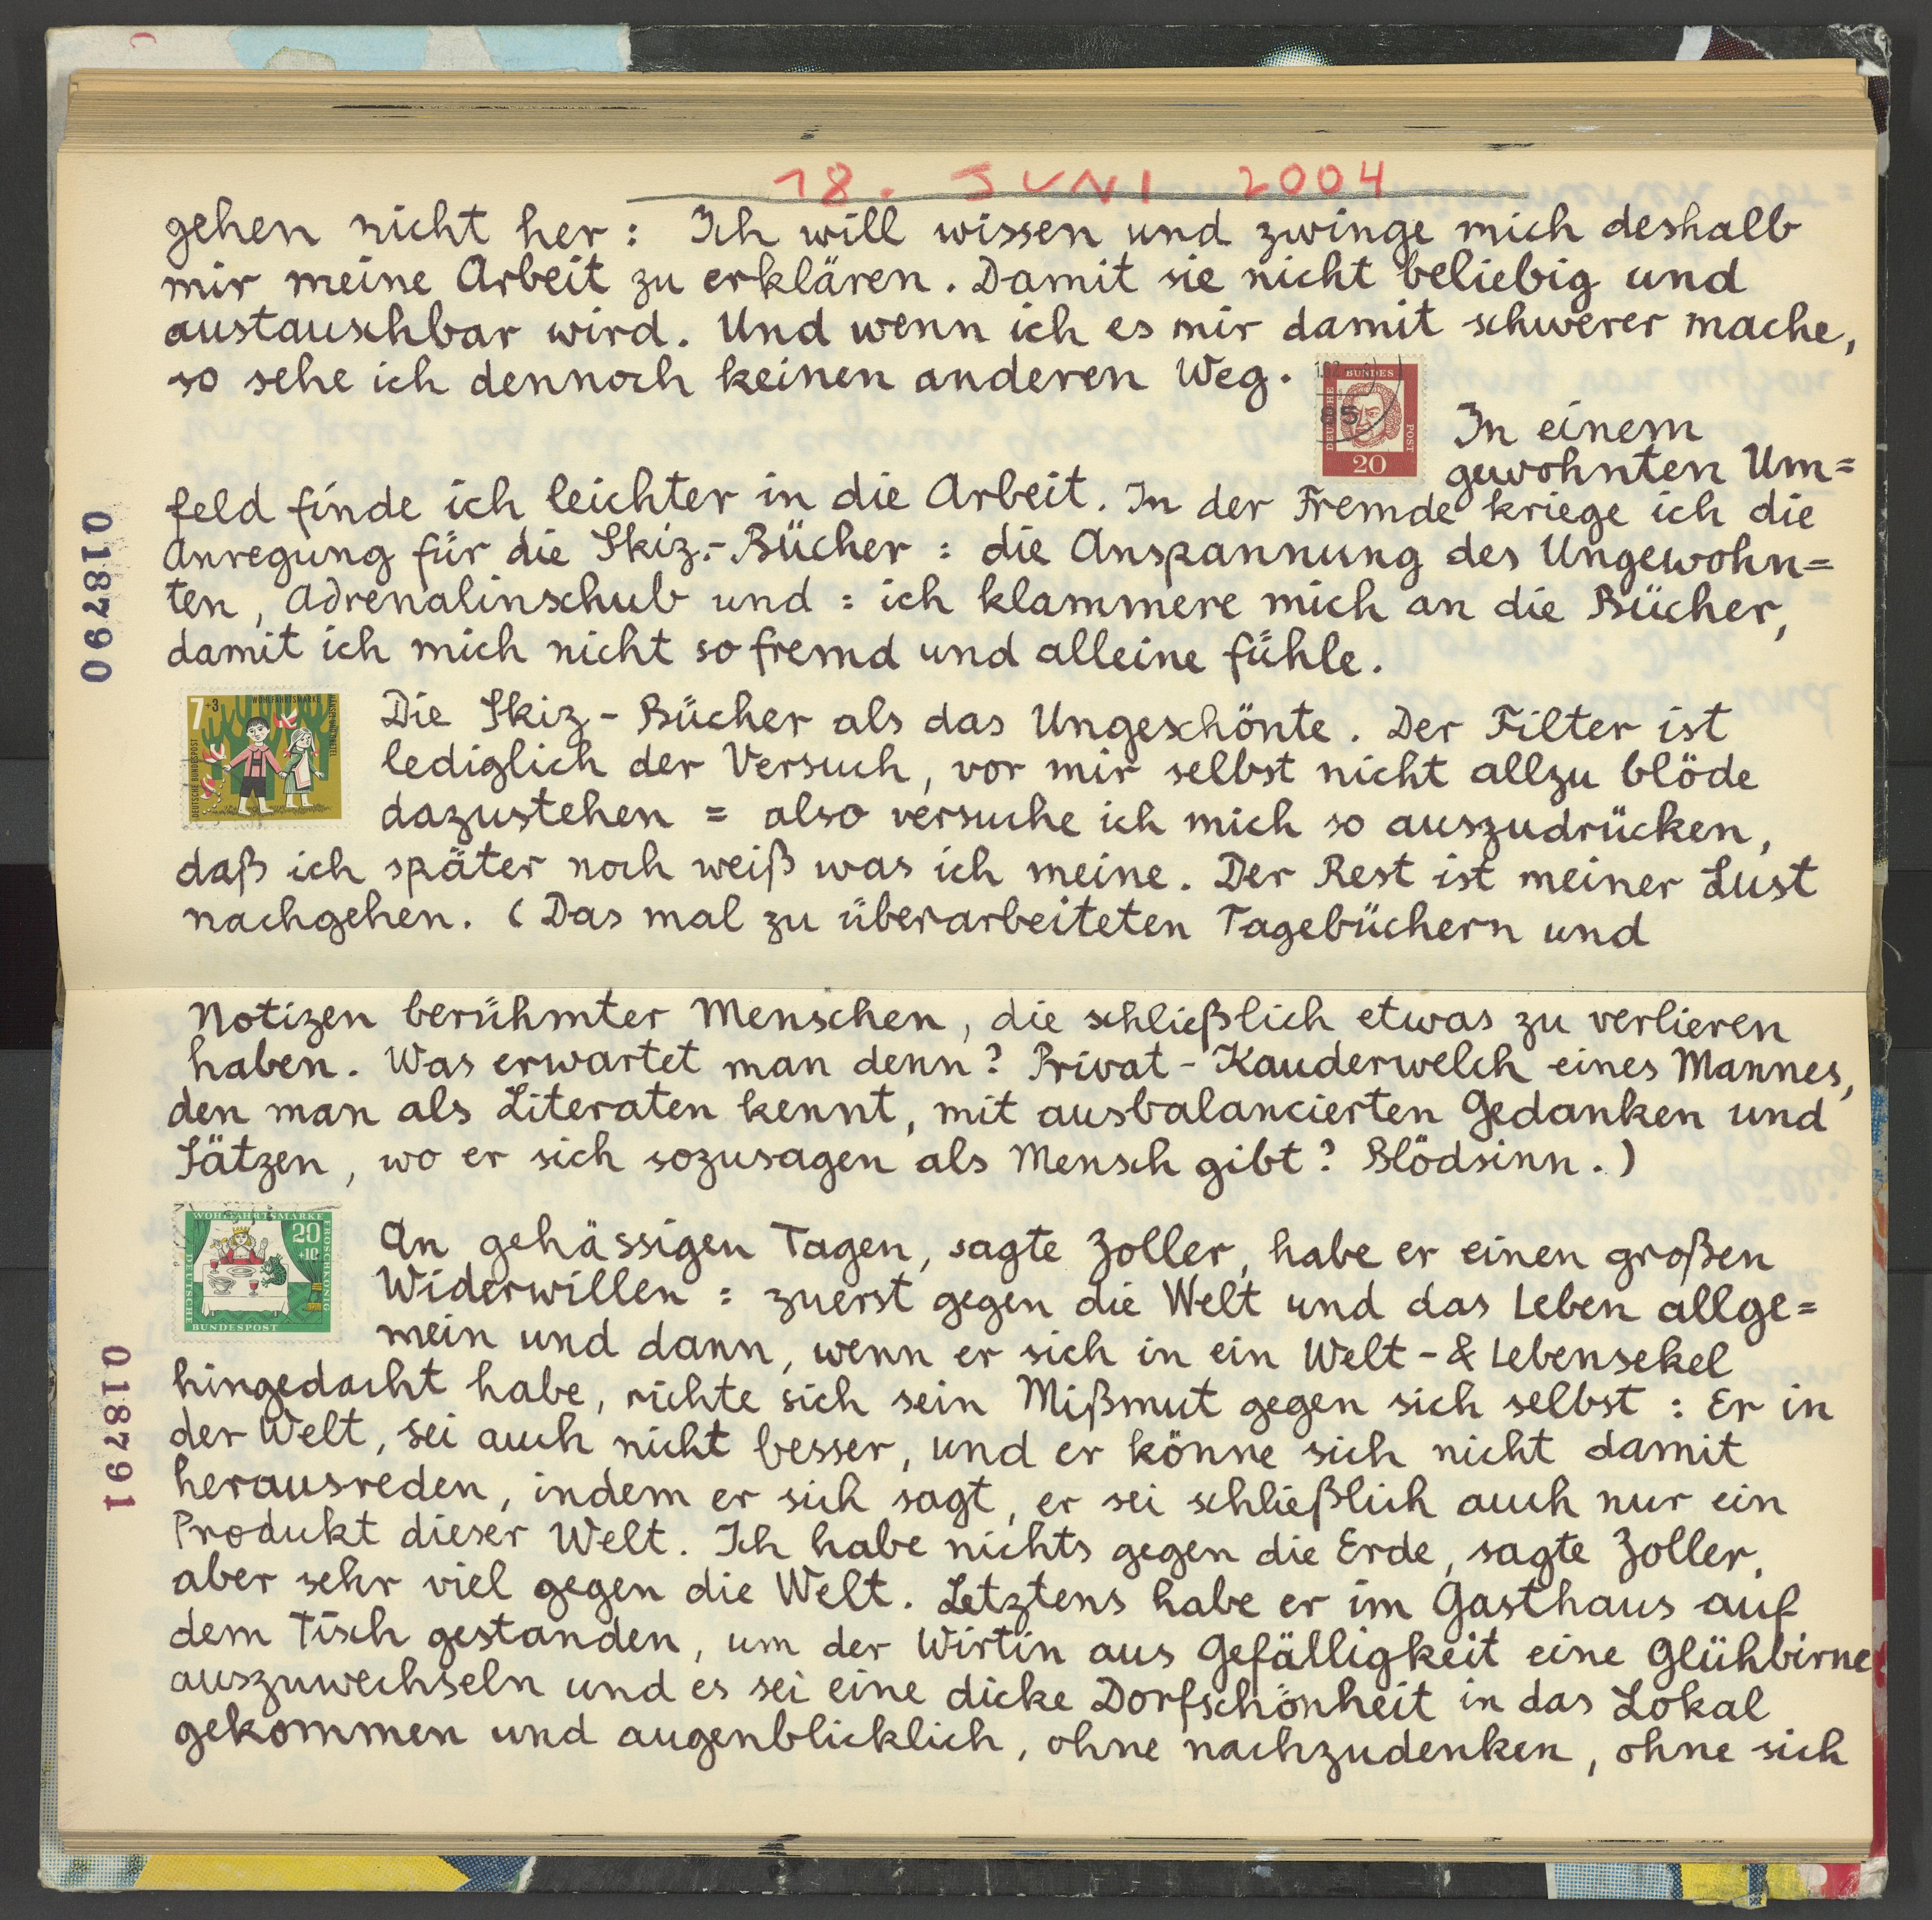 18. JUNI 2004
gehen nicht her: Ich will wissen und zwinge mich deshalb
mir meine Arbeit zu erklären. Damit sie nicht beliebig und
austauschbar wird. Und wenn ich es mir damit schwerer mache,
so sehe ich dennoch keinen anderen Weg.
DEUTSCHE BUNDES POST
20
In einem
gewohnten Um=
feld finde ich leichter in die Arbeit. In der Fremde kriege ich die
Anregung für die Skiz.-Bücher: die Anspannung des Ungewohn=
ten, Adrenalinschub und: ich klammere mich an die Bücher,
damit ich mich nicht so fremd und alleine fühle.
018790
7+3 WOHLFAHRTSMARKE
DEUTSCHE BUNDESPOST
Die Skiz-Bücher als das Ungeschönte. Der Filter ist
lediglich der Versuch, vor mir selbst nicht allzu blöde
dazustehen = also versuche ich mich so auszudrücken,
daß ich später noch weiß was ich meine. Der Rest ist meiner Lust
nachgehen. (Das mal zu überarbeiteten Tagebüchern und
Notizen berühmter Menschen, die schließlich etwas zu verlieren
haben. Was erwartet man denn? Privat-Kauderwelch eines Mannes,
den man als Literaten kennt, mit ausbalancierten Gedanken und
Sätzen, wo er sich sozusagen als Mensch gibt? Blödsinn.)
WOHLFAHRTSMARKE
20
+10
FROSCHKÖNIG
DEUTSCHE
BUNDESPOST
An gehässigen Tagen, sagte Zoller, habe er einen großen
Widerwillen: zuerst gegen die Welt und das Leben allge=
mein und dann, wenn er sich in ein Welt-& Lebensekel
hingedacht habe, richte sich sein Mißmut gegen sich selbst: Er in
der Welt, sei auch nicht besser, und er könne sich nicht damit
herausreden, indem er sich sagt, er sei schließlich auch nur ein
Produkt dieser Welt. Ich habe nichts gegen die Erde, sagte Zoller,
aber sehr viel gegen die Welt. Letztens habe er im Gasthaus auf
dem Tisch gestanden, um der Wirtin aus Gefälligkeit eine Glühbirne
auszuwechseln und es sei eine dicke Dorfschönheit in das Lokal
gekommen und augenblicklich, ohne nachzudenken, ohne sich
018791